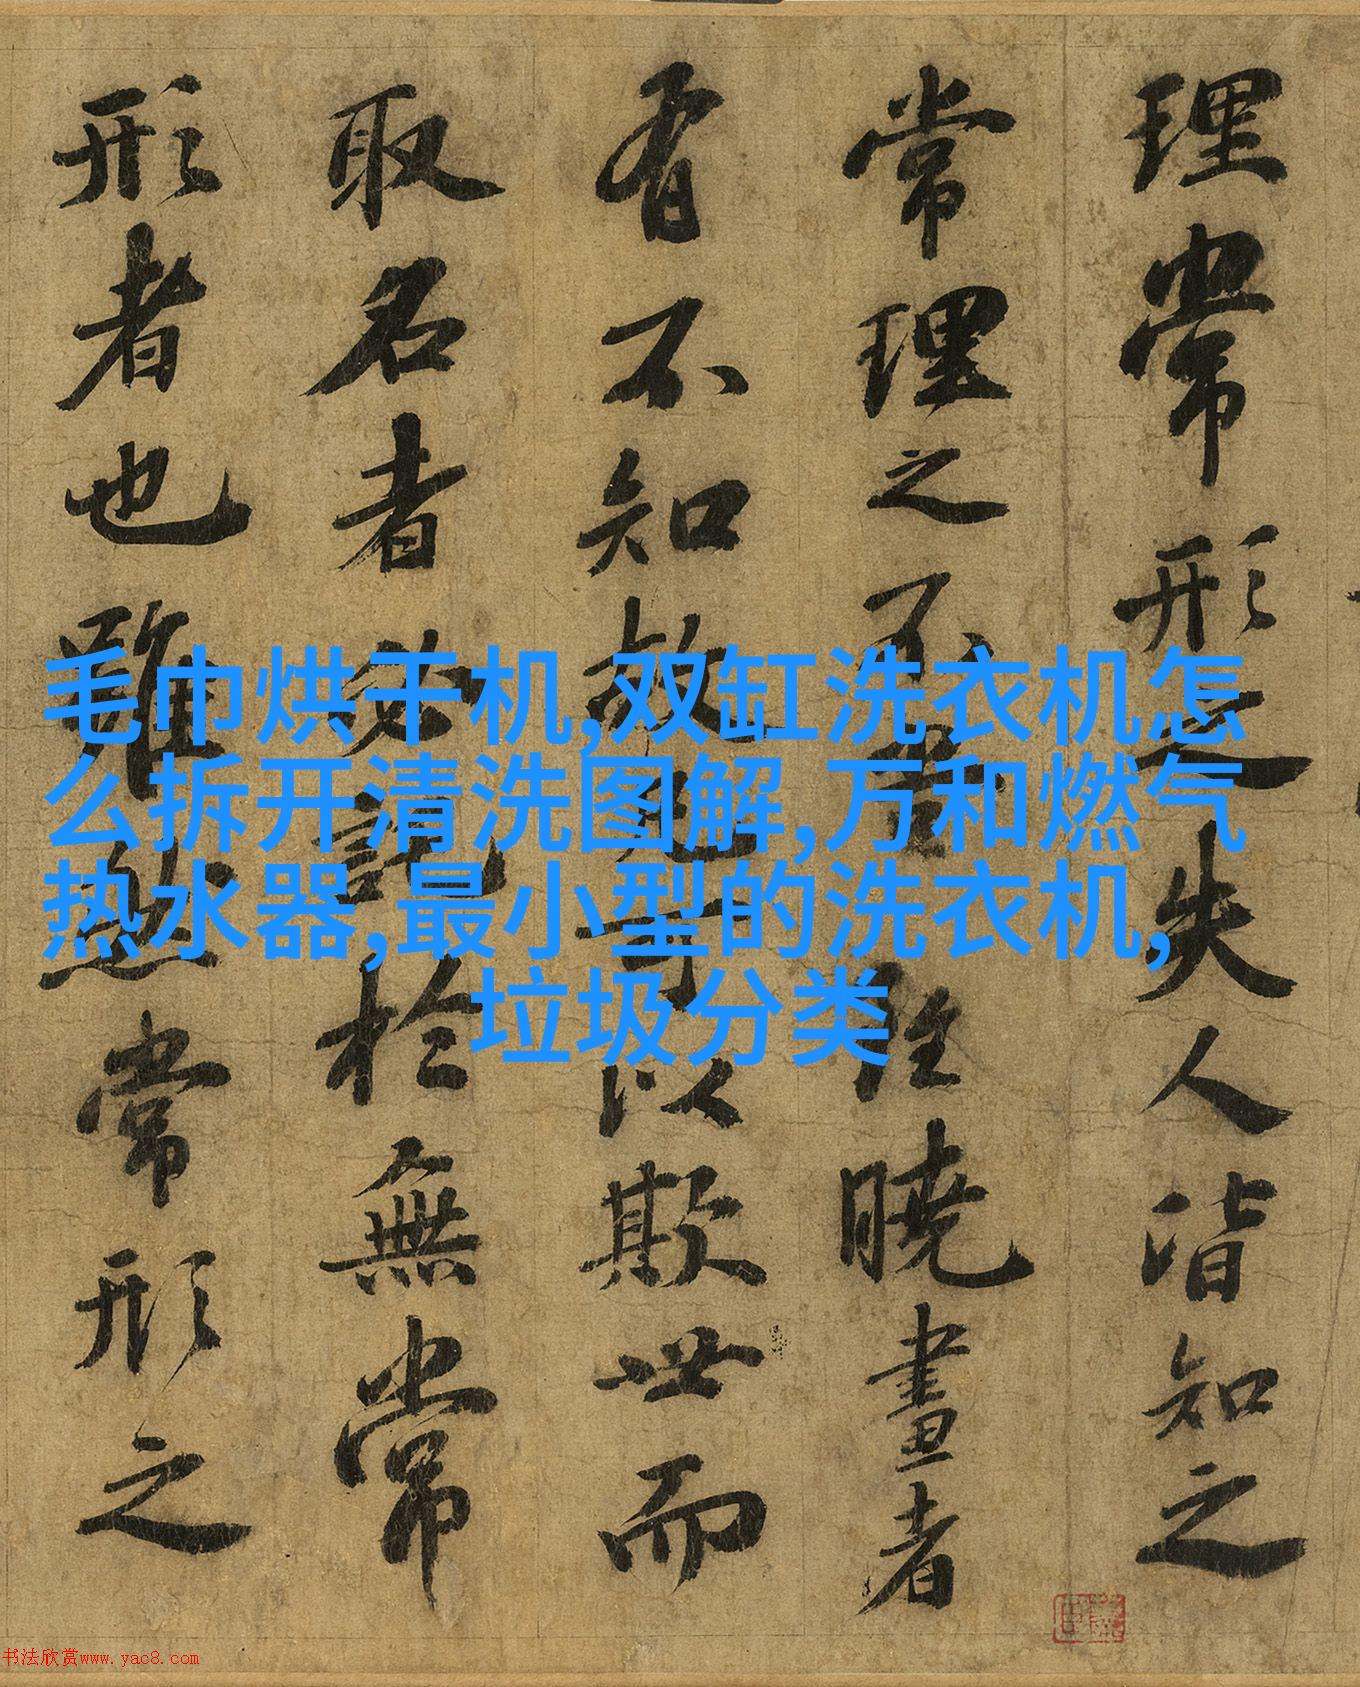 理常形之失人皆知之
常理之不當雖曉畫者
有不知故凡可以欺世而
取名者必託於無常
形者也雖然常形之
毛巾烘干机,双缸洗衣机怎
么拆开清洗图解,万和燃气
热水器,最小型的洗衣机,
垃圾分类
书法欣赏www.yac8.com